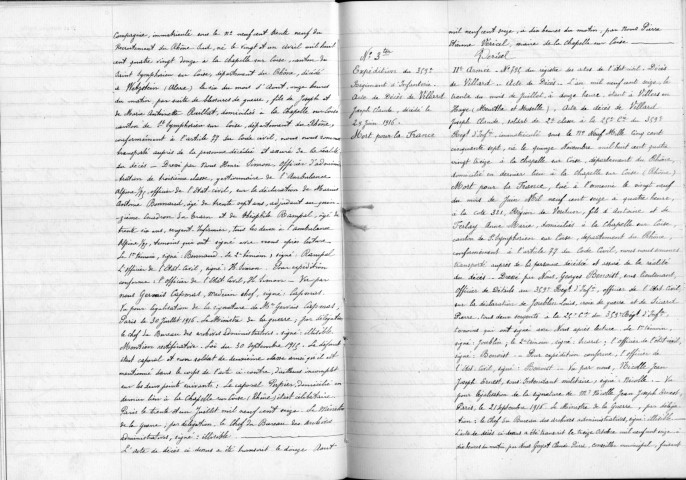 Compagnie, immatriculé sous le N° neuf cent trente neuf du
recrutement du Rhône Sud, né le vingt un avril mil huit
cent quatre vingt onze à la Chapelle sur Coise, canton de
Saint Symphorien sur Coise, département du Rhône, décédé
à (Alsace) le six du mois d'Août, onze heures
du matin par suite de blessures de guerre, fils de Joseph et
de Marie Antoinette domiciliés à la Chapelle sur Coise
canton de St Symphorien sur Coise, département du Rhône,
conformément à l'article 77 du Code civil, nous nous sommes
transporté auprès de la personne décédée et assuré de la réalité
du décès — Dressé par Nous Henri Simon, Officier d'administration
de troisième classe, gestionnaire de l'Ambulance
Alpine, officier de l'état civil, sur la déclaration de
Antoine Bonnard, âgé de trente sept ans, adjudant au
escadron du train et de Théophile Rampal, âgé de
trente six ans, sergent infirmier, tous les deux à l'ambulance
Alpine, témoins qui ont signé avec nous après lecture.
Le 1er témoin, signé : Bonnard. Le 2e témoin : signé : Rampal
L'officier de l'État Civil, signé : H. Simon — Pour expédition
conforme : l'officier de l'état civil, H. Simon — Vu par
nous Germain Caporset, médecin chef, signé : Caporset
Vu pour légalisation de la signature de Mr
Paris le 30 Juillet 1916. Le Ministre de la guerre, par délégation
le chef du Bureau des archives administratives, signé : illisible.
Mention rectificative : Loi du 30 septembre 1915. Le défunt
était caporal et non soldat de deuxième classe ainsi qu'il est
mentionné dans le corps de l'acte ci contre, d'ailleurs incomplet
sur les deux points suivants : Le caporal domicilié en
dernier lieu à la Chapelle sur Coise (Rhône) était célibataire
Paris le trente et un Juillet mil neuf cent seize. Le Ministre
de la guerre ; par délégation, le Chef du Bureau des archives
administratives, signé : illisible.
L'acte de décès ci dessus a été transcrit le douze Août
mil neuf cent seize, à dix heures du matin, par Nous Pierre
Etienne Véricel, maire de la Chapelle sur Coise —
Véricel
N° 3
Expédition du 359e
Régiment d'Infanterie.
Acte de Décès de Villard
Joseph Claude, décédé le
29 juin 1916.
Mort pour la France
IIe Armée — N° 795 du registre des actes de l'État-civil. Décès
de Villard — Acte de Décès. L'an mil neuf cent seize, le
trente du mois de juillet, à douze heures, étant à Villers en
Haye (Meurthe et Moselle). Acte de décès de Villard
Joseph Claude, soldat de 2e classe à la 25e Cie du 359e
Régt d'Infie immatriculé sous le N° Neuf Mille Cinq cent
cinquante sept, né le quinze Novembre mil huit cent quatre
vingt treize à la chapelle sur Coise, département du Rhône,
domicilié en dernier lieu à la Chapelle sur Coise (Rhône)
Mort pour la France, tué à l'ennemi le vingt neuf
du mois de Juin Mil neuf cent seize à quatre heures,
à la cote 321, Région de Verdun, fils d'Antoine et de
Anne Marie, domiciliés à la Chapelle sur Coise,
canton de St Symphorien sur Coise, département du Rhône,
conformément à l'article 77 du Code Civil, nous nous sommes
transporté auprès de la personne décédée et assuré de la réalité
du décès — Dressé par Nous, Georges Benoist, sous lieutenant,
Officier de Détails au 359e Régt d'Infie, officier de l'État Civil,
sur la déclaration de Louis, croix de guerre et de
Pierre, tous deux soldats à la 25e Cie du 359e Régt d'Infie
témoins qui ont signé avec Nous après lecture. Le 1er témoin,
signé : le 2e témoin, signé : l'officier de l'état civil,
signé : Benoist — Pour expédition conforme, l'officier de
l'état civil, signé : Benoist — Vu par nous, Nicolle Jean
Joseph Ernest, sous Intendant militaire, signé : Nicolle — Vu
pour légalisation de la signature de Mr Nicolle Jean Joseph Ernest,
Paris, le 21 Septembre 1916. Le Ministre de la Guerre, par délégation :
le Chef du Bureau des archives administratives, signé : illisible
L'acte de décès ci dessus a été transcrit le treize Octobre mil neuf cent seize à
dix heures du matin par Nous Guyot Claude Pierre, conseiller municipal, faisant